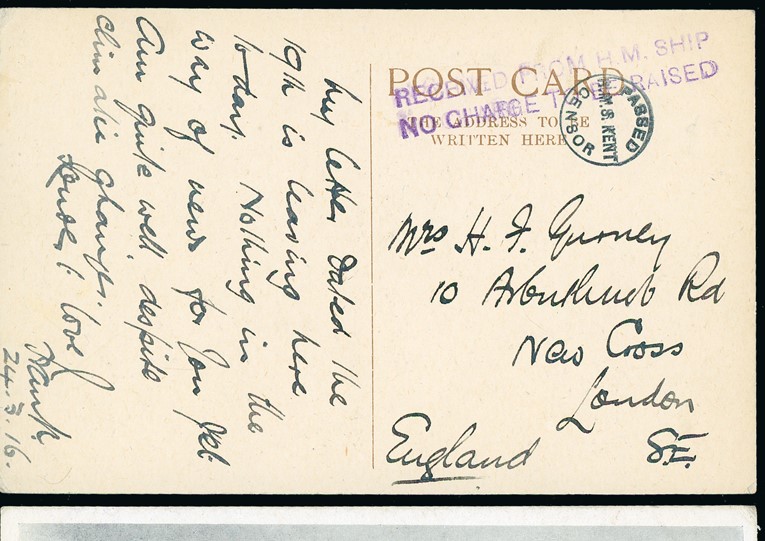 My letter dated the
19th is leaving here
to-day. Nothing in the
way of news for you yet.
Am quite well, despite
climatic changes.
love
Frank
24.3.16.
POST CARD
THE ADDRESS TO BE
WRITTEN HERE
RECEIVED FROM H.M. SHIP
NO CHARGE TO BE RAISED
PASSED
H.M.S. KENT
CENSOR
Mrs H. F. Gurney
10 Arbuthnot Rd
New Cross
London
S.E.
England